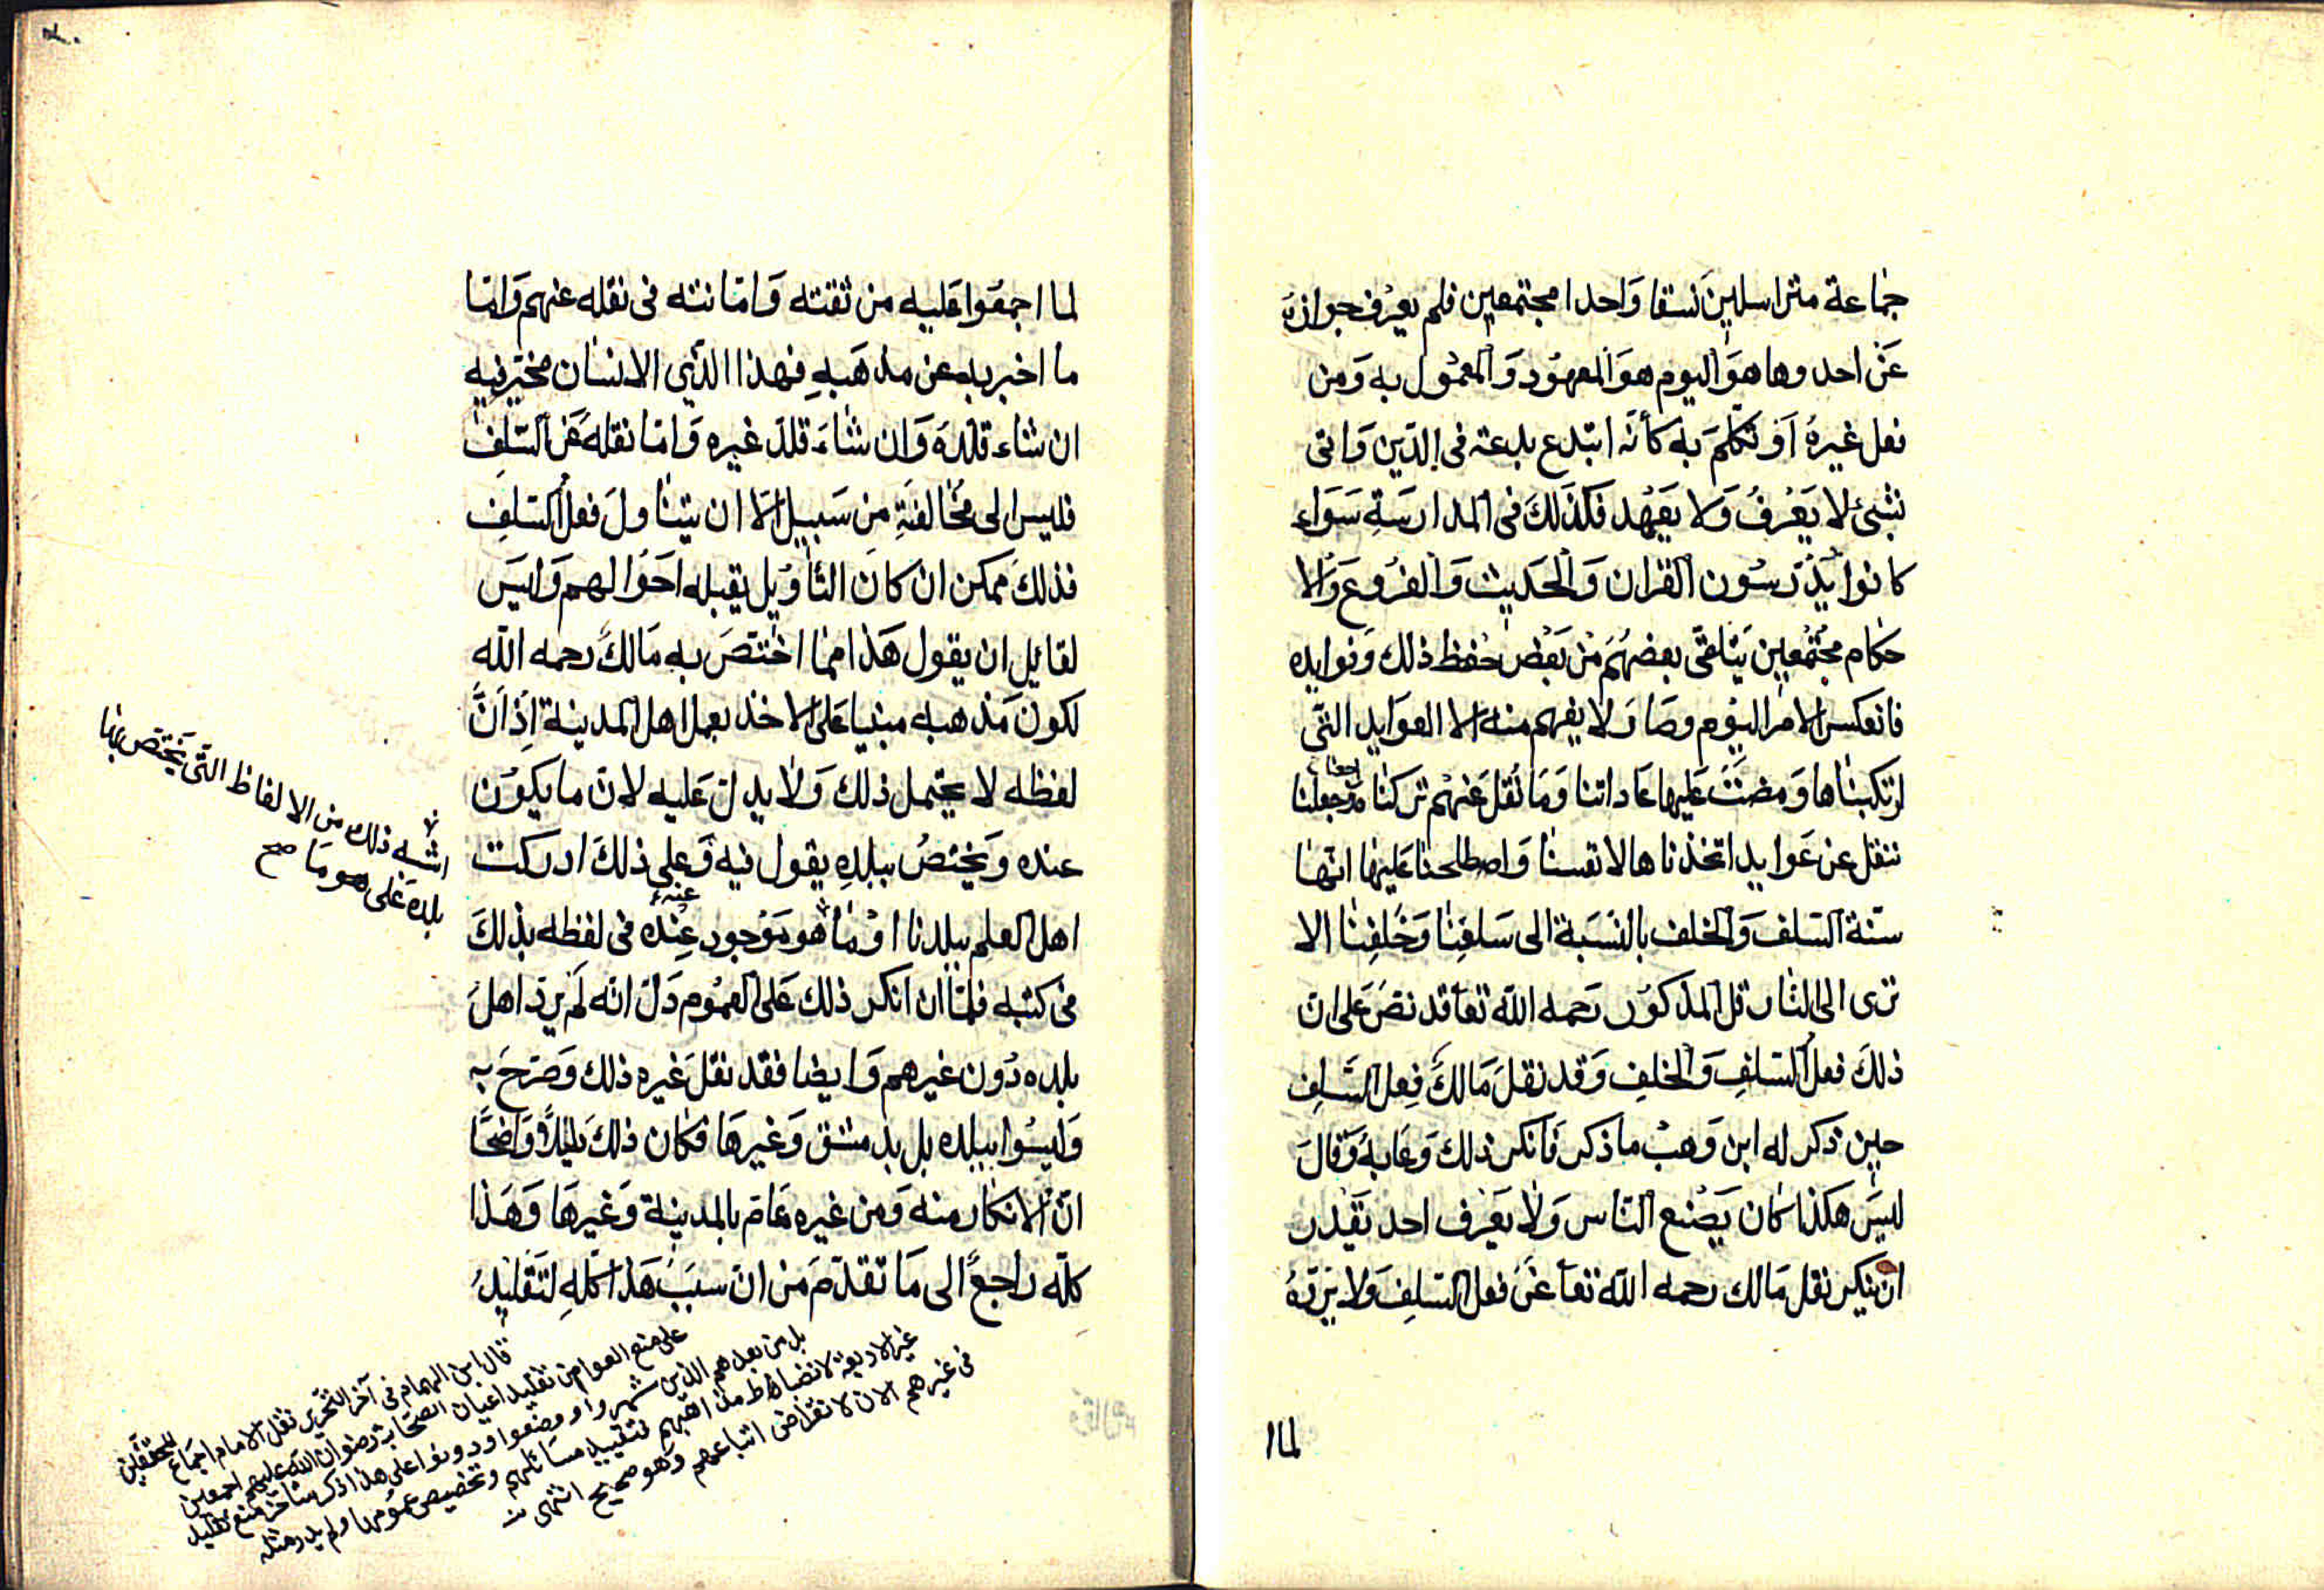 جماعة متراسلين نسقا واحدا مجتمعين فلم يعرف جوازه
عن احد وها هو اليوم هو المعهود والمعمول به ومن
فعل غيره او تكلم به كأنه ابتدع بدعة فى الدين واتى
بشىء لا يعرف ولا يعهد فكذلك فى المدارسة سواء
كانوا يدرسون القران والحديث والفروع والا
حكام مجتمعين يتلقى بعضهم من بعض حفظ ذلك وفوايده
فانعكس الامر اليوم وصار لا يفهم منه الا العوايد التى
ارتكبناها ومضت عليها عاداتنا وما نقل عنهم تركناه وجعلنا
ننقل عن عوايد اتخذناها لانفسنا واصطلحنا عليها انها
سنة السلف والخلف بالنسبة الى سلفنا وخلفنا الا
ترى الى الناقل المذكور رحمه الله تعا قد نص على ان
ذلك فعل السلف والخلف وقد نقل مالك فعل السلف
حين ذكر له ابن وهب ما ذكر فانكر ذلك وعابه وقال
ليس هكذا كان يصنع الناس ولا يعرف احد يقدر
ان ينكر نقل مالك رحمه الله تعا عن فعل السلف ولا يرده
لما
لما اجمعوا عليه من ثقته وامانته فى نقله عنهم واما
ما اخبر به عن مذهبه فهذا الذى الانسان مخير فيه
ان شاء قلده وان شاء قلد غيره واما نقله عن السلف
فليس الى مخالفته من سبيل الا ان يتناول فعل السلف
فذلك ممكن ان كان التأويل يقبله احوالهم وليس
لقايل ان يقول هذا مما اختص به مالك رحمه الله
لكون مذهبه مبنيا على الاخذ بعمل اهل المدينة اذ ان
لفظه لا يحتمل ذلك ولا يدل عليه لان ما يكون
عنده ويختص ببلده يقول فيه وعلى ذلك ادركت
اهل العلم ببلدنا او ما هو موجود عنده فى لفظه بذلك
فى كتبه فلما ان انكر ذلك على العموم دل انه لم يرد اهل
بلده دون غيرهم وايضا فقد نقل غيره ذلك وصرح به
وليسوا ببلده بل بدمشق وغيرها فكان ذلك دليلا واضحا
ان الانكار منه ومن غيره عام بالمدينة وغيرها وهذا
كله راجع الى ما تقدم من ان سبب هذا كله لتقليد
اشبه ذلك من الالفاظ التى يختص بها
بلده على هو وما صح
قال ابن الهمام فى آخر التحرير نقل الامام اجماع المحققين
على منع العوام من تقليد اعيان الصحابة رضوان الله عليهم اجمعين
بل من بعدهم الذين شهروا ووضعوا ودونوا على هذا ذكر متأخر منع تقليد
غير الاربعة لانضباط مذاهبهم لتقييد مسائلهم وتخصيص عمومها ولم يدر مثله
فى غيرهم الان لانقراض اتباعهم وهو صحيح انتهى